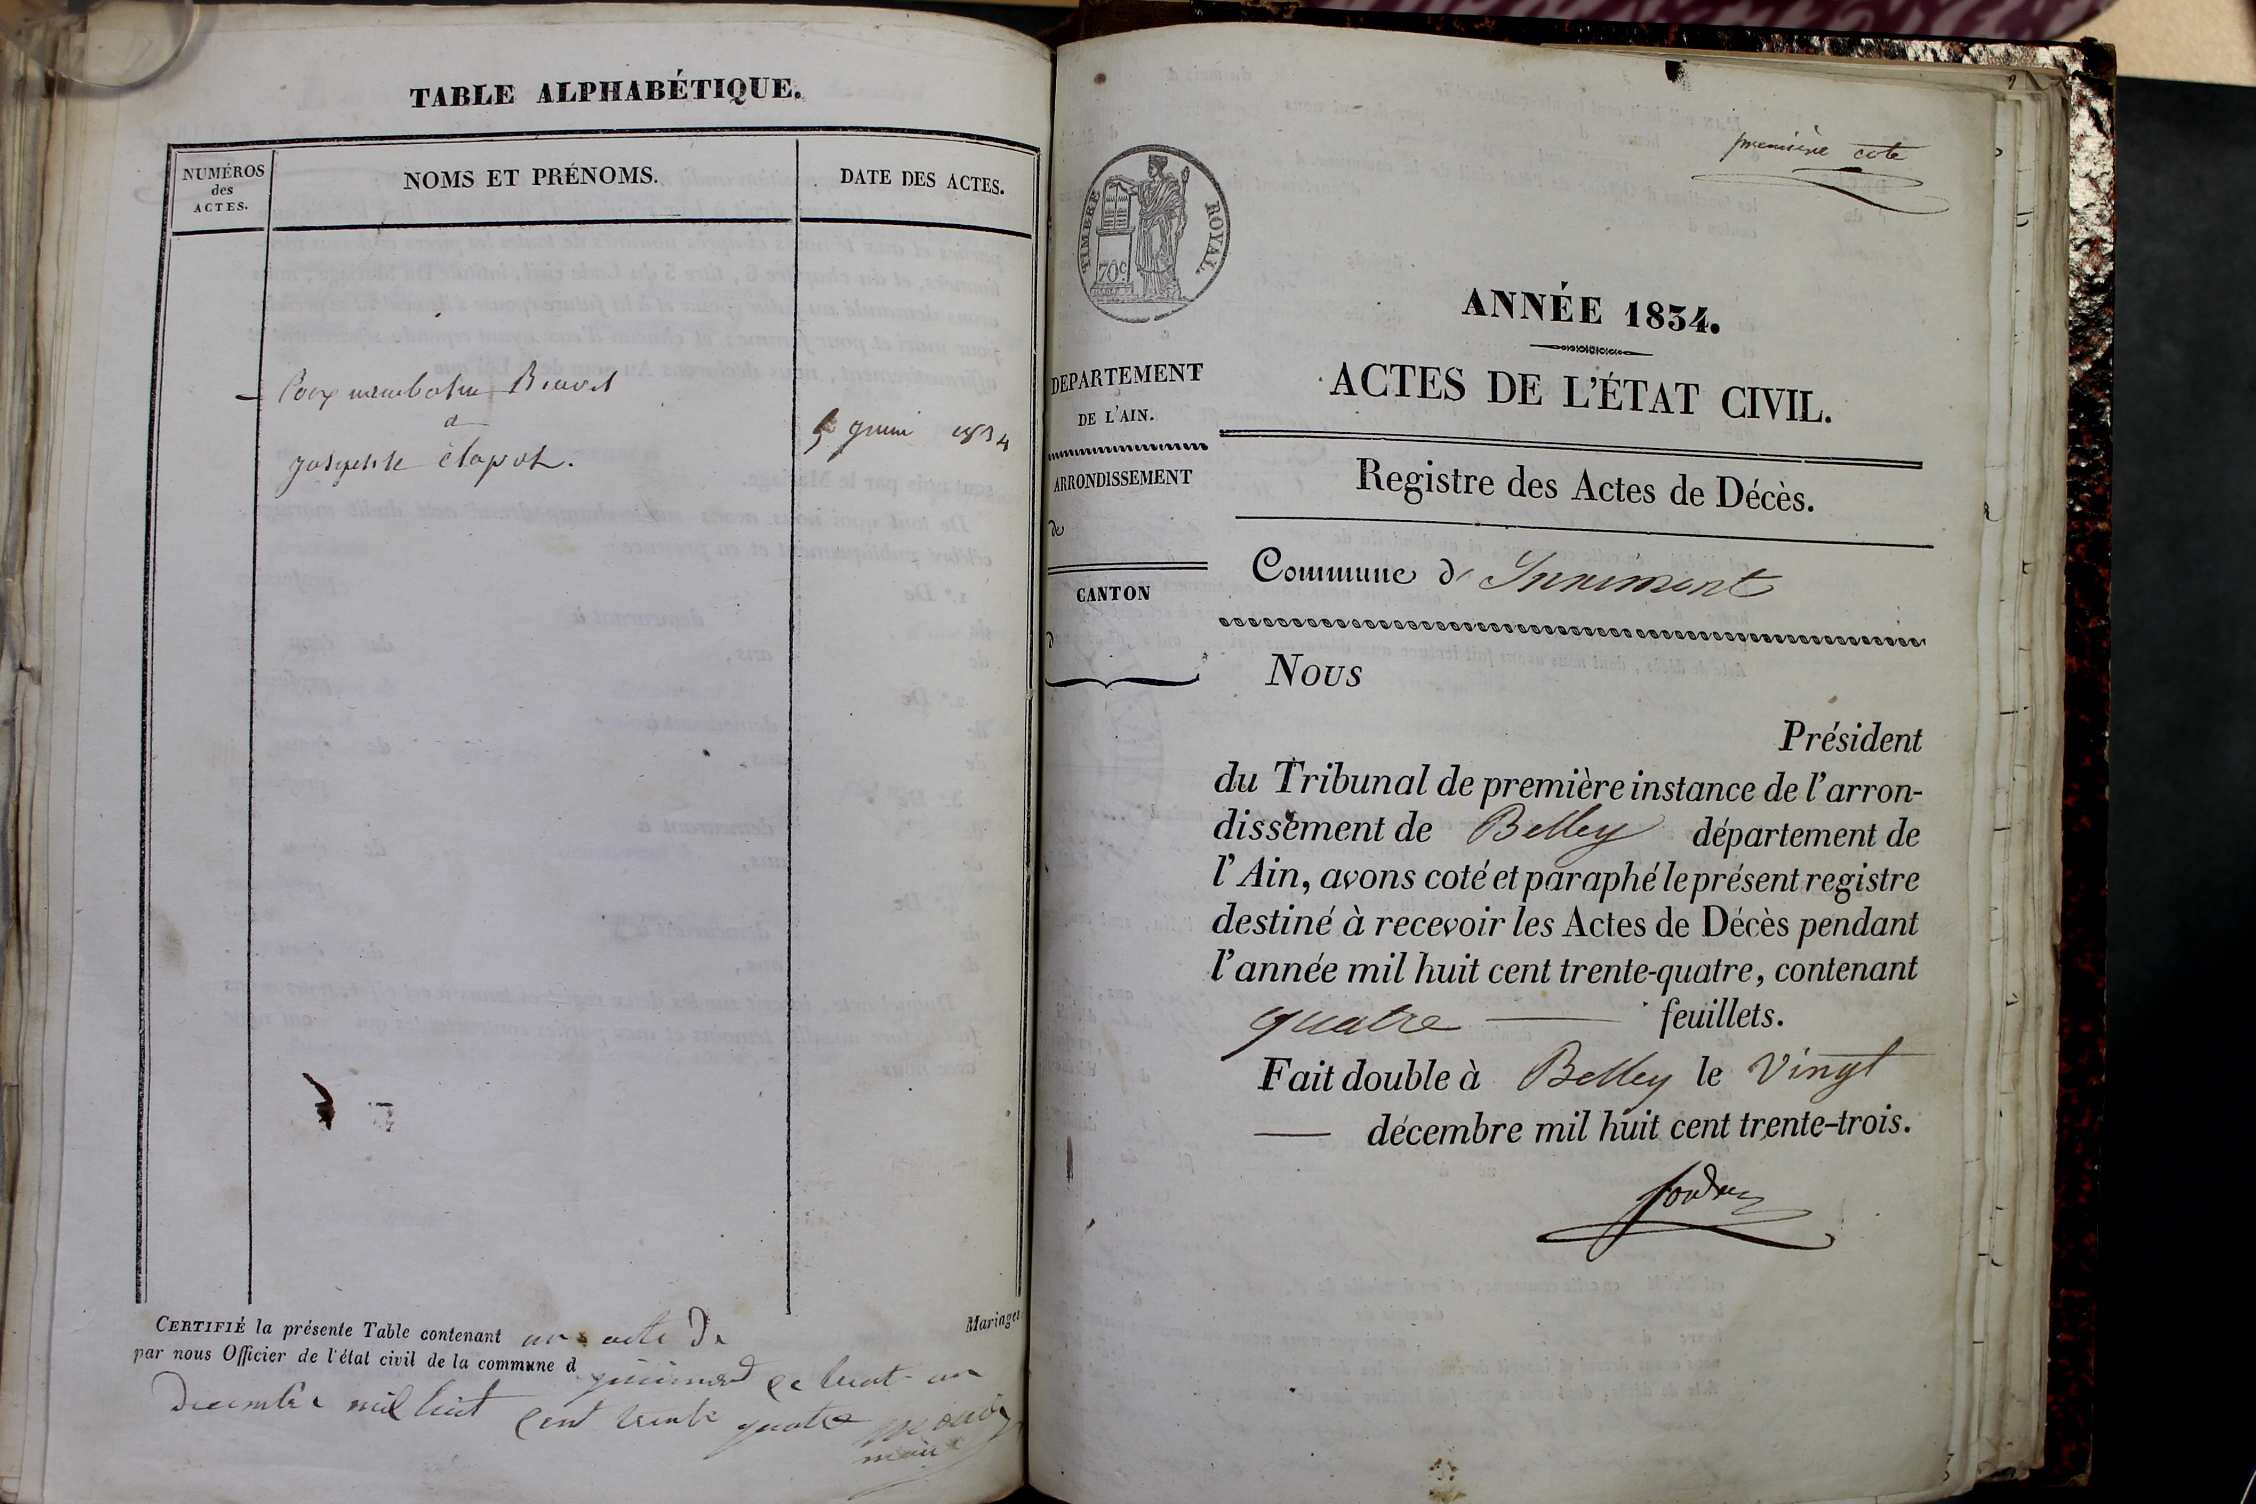 TABLE ALPHABÉTIQUE.
NUMÉROS
des
ACTES.
NOMS ET PRÉNOMS.
DATE DES ACTES.
a
5 juin 1834
CERTIFIÉ la présente Table contenant un acte De Mariages
par nous Officier de l'état civil de la commune d
Decembre mil huit cent trente quatre
maire
première cote
TIMBRE ROYAL.
70c
ANNÉE 1834.
DEPARTEMENT
DE L'AIN.
ARRONDISSEMENT
de
CANTON
d
ACTES DE L'ÉTAT CIVIL.
Registre des Actes de Décès.
Commune d' Innimont
Nous
Président
du Tribunal de première instance de l'arron-
dissement de Belley département de
l'Ain, avons coté et paraphé le présent registre
destiné à recevoir les Actes de Décès pendant
l'année mil huit cent trente-quatre, contenant
quatre — feuillets.
Fait double à Belley le Vingt
— décembre mil huit cent trente-trois.